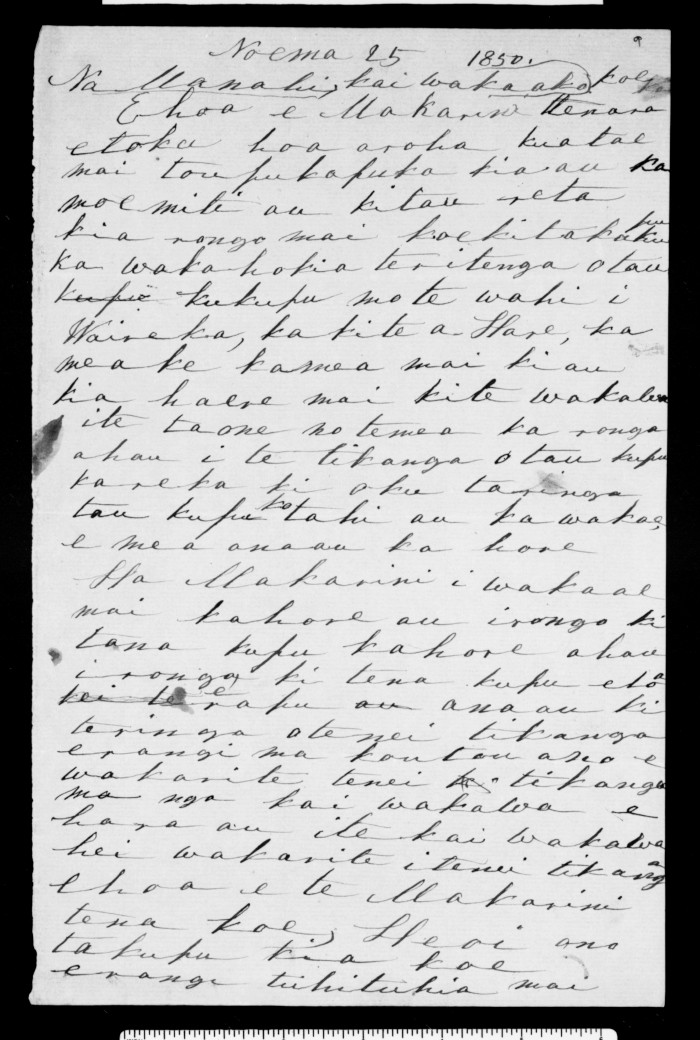 Noema 25 1850.
Na Manahi, kai waka ako koe
Ehoa e Makarini tenara
etoku hoa aroha kuatae
mai toupukapuka kia au ka
moemiti au kitau reta
kia rongo mai koekitaku kupu
ka waka hokia teritenga otau
kupu kukupu mote wahi i
Waireka, ka kite a Hare, ka
mea ke kamea mai ki au
kia haere mai kite wakawa
ite taone notemea ka rongo
ahau i te tikanga otau kupu
ka reka ki oku taringa
tau kupu ko tahi au ka wakae,
e mea anaau ka hore
Ha Makarini i wakaae
mai kahore au irongo ki
tana kupu kahore ahau
i rongo ki tena kupu etoa
kei te rapu au anaau ki
teringa otenei tikanga
erangi ma koutou ano e
wakarite tenei tikanga
ma nga kai wakawa e
hara au ite kai wakawa
hei wakarite itenei tikanga
ehoa e te Makarini
tena koe, Heoi ano
takupu kia koe
erangi tuhituhia mai